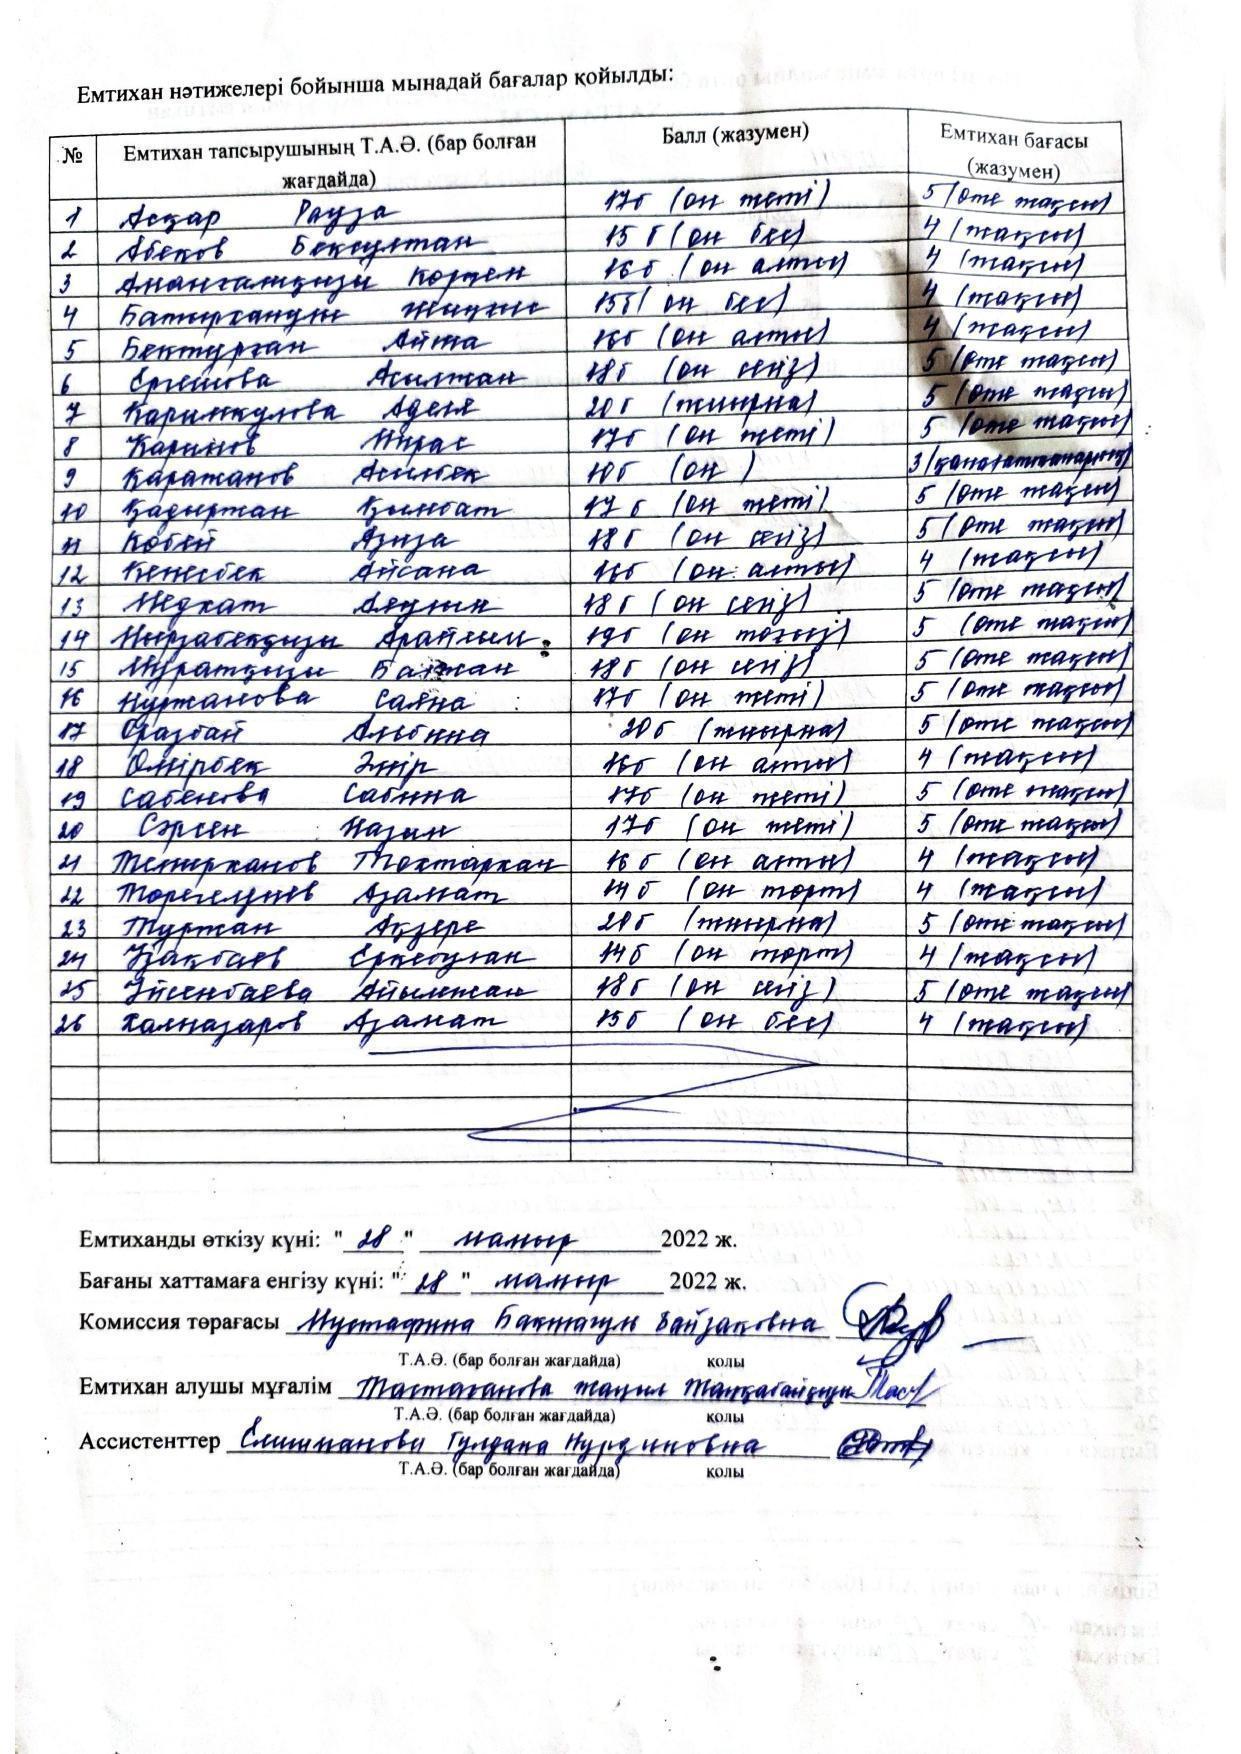 Емтихан нәтижелері бойынша мынадай бағалар қойылды:
№ Емтихан тапсырушының Т.А.Ә. (бар болған жағдайда) Балл (жазумен) Емтихан бағасы (жазумен)
1 Асқар Рауза 17б (он жеті) 5 (өте жақсы)
2 Абеков Бексултан 15 б (он бес) 4 (жақсы)
3 Амангелдіқызы Көркем 16б (он алты) 4 (жақсы)
4 Батырханұлы 15б (он бес) 4 (жақсы)
5 Бектурган 16б (он алты) 4 (жақсы)
6 Ергешова Асылжан 18б (он сегіз) 5 (өте жақсы)
7 Каримкулова Аделя 20б (жиырма) 5 (өте жақсы)
8 Каримов Мирас 17б (он жеті) 5 (өте жақсы)
9 Каражанов Асылбек 10б (он) 3 (қанағаттанарлық)
10 Қадыржан Қымбат 17 б (он жеті) 5 (өте жақсы)
11 Көбей Азиза 18б (он сегіз) 5 (өте жақсы)
12 Кенесбек Айсана 16б (он алты) 4 (жақсы)
13 Медхат Аяулым 18б (он сегіз) 5 (өте жақсы)
14 Мырзабекқызы Арайлым 19б (он тоғыз) 5 (өте жақсы)
15 Мұратқызы Балжан 18б (он сегіз) 5 (өте жақсы)
16 Нуржанова Саяна 17б (он жеті) 5 (өте жақсы)
17 Оразбай Альбина 20б (жиырма) 5 (өте жақсы)
18 Өмірбек Әмір 16б (он алты) 4 (жақсы)
19 Сабенова Сабина 17б (он жеті) 5 (өте жақсы)
20 Сәрсен Назым 17б (он жеті) 5 (өте жақсы)
21 Темирханов Тохтархан 16б (он алты) 4 (жақсы)
22 Азамат 14б (он төрт) 4 (жақсы)
23 Туржан Ақзере 20б (жиырма) 5 (өте жақсы)
24 Ұзақбаев Еркебұлан 14б (он төрт) 4 (жақсы)
25 Үйсенбаева Айымжан 18б (он сегіз) 5 (өте жақсы)
26 Халназаров Азамат 15б (он бес) 4 (жақсы)
Емтиханды өткізу күні: "28" мамыр 2022 ж.
Бағаны хаттамаға енгізу күні: "28" мамыр 2022 ж.
Комиссия төрағасы Мустафина Бактагуль Байзаковна
Т.А.Ә. (бар болған жағдайда) қолы
Емтихан алушы мұғалім Тастаганова
Т.А.Ә. (бар болған жағдайда) қолы
Ассистенттер Елишпанова Гулдана Нурдиновна
Т.А.Ә. (бар болған жағдайда) қолы